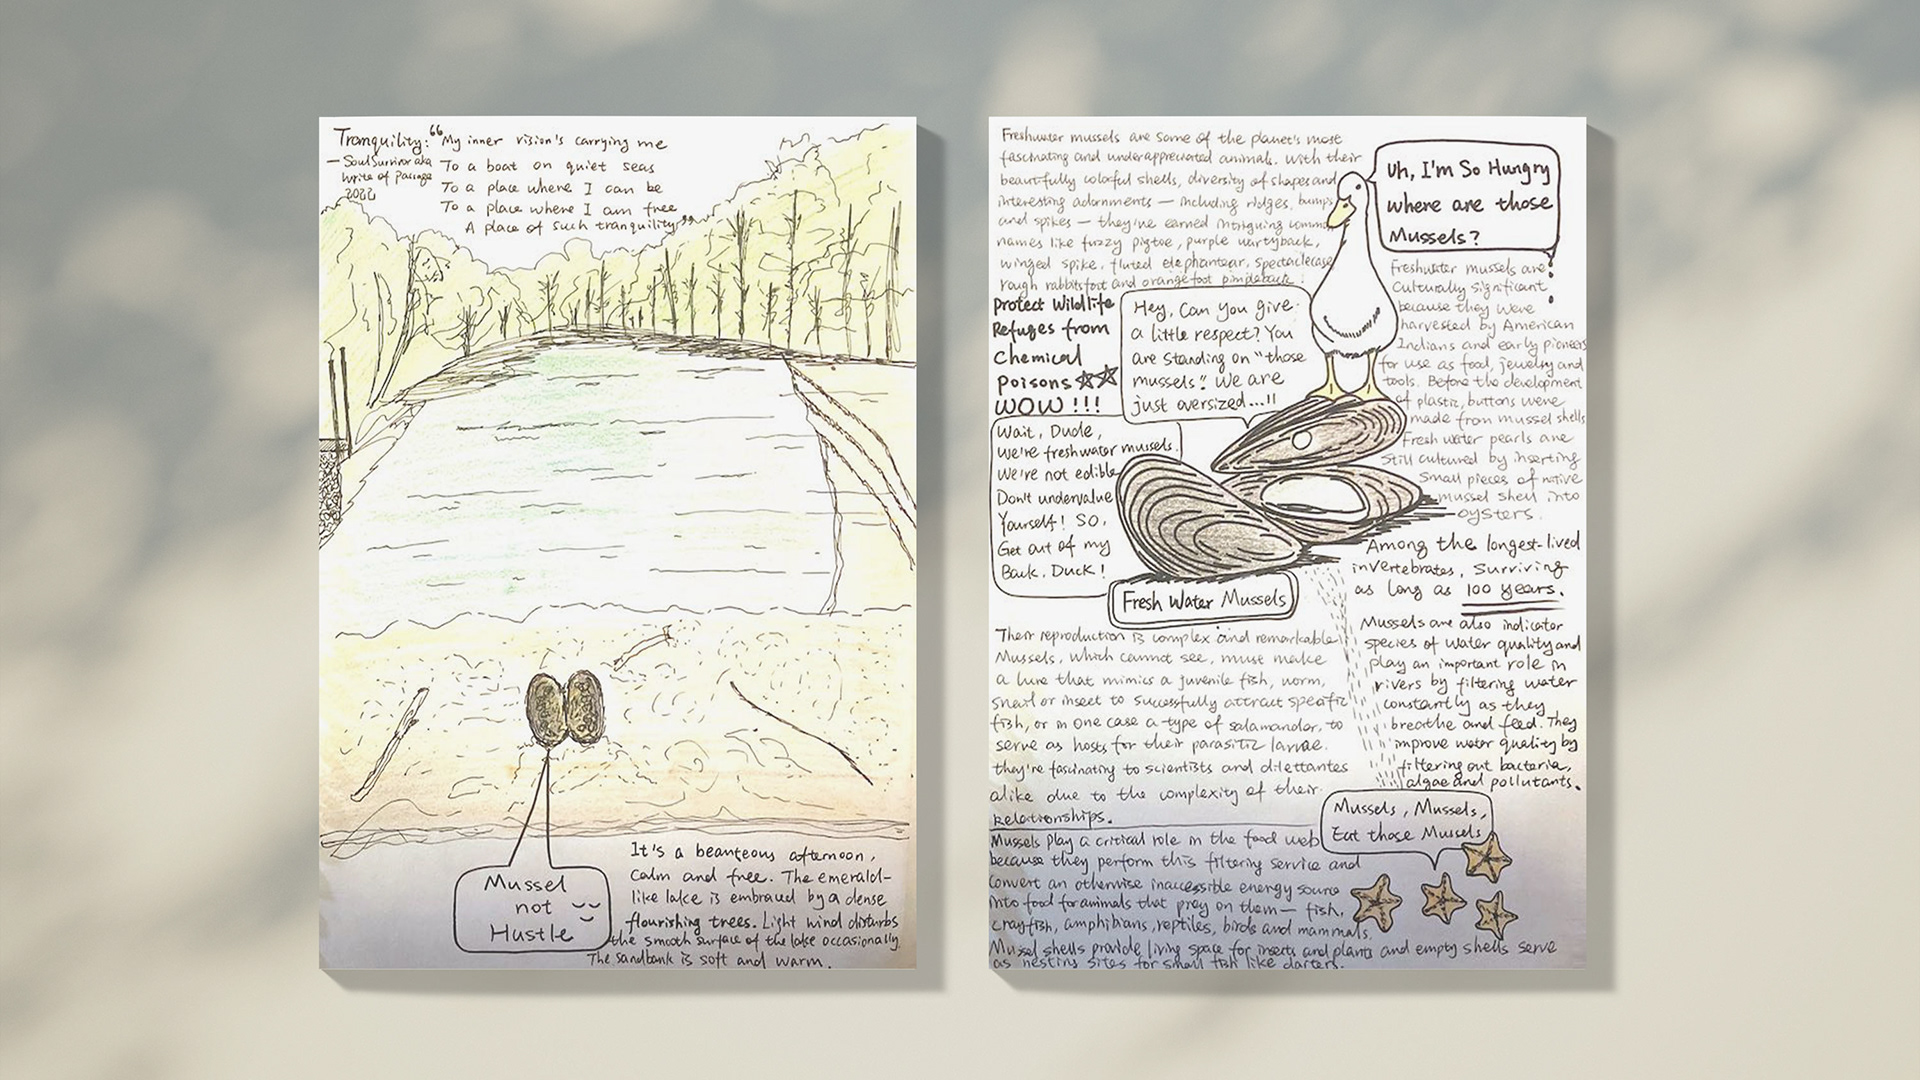 Tranquility:
— SoulSurvivor aka
Write of Passage
2022
“My inner vision's carrying me
To a boat on quiet seas
To a place where I can be
To a place where I am free
A place of such tranquility”
Mussel
not
Hustle
It's a beauteous afternoon,
calm and free. The emerald-
like lake is embraced by a dense
flourishing trees. Light wind disturbs
the smooth surface of the lake occasionally.
The sandbank is soft and warm.
Freshwater mussels are some of the planet's most
fascinating and underappreciated animals. With their
beautifully colorful shells, diversity of shapes and
interesting adornments — including ridges, bumps
and spikes — they've earned intriguing common
names like fuzzy pigtoe, purple wartyback,
winged spike, fluted elephantear, spectaclecase
rough rabbitsfoot and orangefoot pimpleback!
Uh, I'm So Hungry
where are those
Mussels?
Protect Wildlife
Refuges from
Chemical
Poisons
WOW!!!
Hey, Can you give
a little respect? You
are standing on "those
mussels". We are
just oversized...!!
Wait, Dude,
We're freshwater mussels.
We're not edible
Don't undervalue
Yourself! SO,
Get out of my
Back. Duck!
Fresh Water Mussels
Freshwater mussels are
Culturally significant
because they were
harvested by American
Indians and early pioneers
for use as food, jewelry and
tools. Before the development
of plastic, buttons were
made from mussel shells
Fresh water pearls are
Still cultured by inserting
Small pieces of native
mussel shell into
oysters.
Among the longest-lived
invertebrates, surviving
as long as 100 years.
Mussels are also indicator
species of water quality and
play an important role in
rivers by filtering water
constantly as they
breathe and feed. They
improve water quality by
filtering out bacteria,
algae and pollutants.
Their reproduction is complex and remarkable!
Mussels, which cannot see, must make
a lure that mimics a juvenile fish, worm,
snail or insect to successfully attract specific
fish, or in one case a type of salamander, to
serve as hosts for their parasitic larvae.
they're fascinating to scientists and dilettantes
alike due to the complexity of their
relationships.
Mussels play a critical role in the food web
because they perform this filtering service and
convert an otherwise inaccessible energy source
into food for animals that prey on them — fish,
crayfish, amphibians, reptiles, birds and mammals.
Mussel shells provide living space for insects and plants and empty shells serve
as nesting sites for small fish like darters.
Mussels, Mussels,
Eat those Mussels